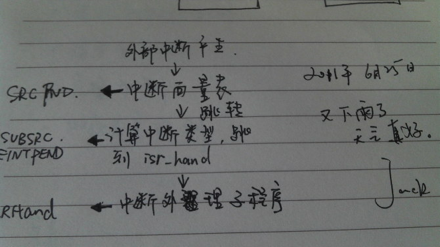 外部中断产生.
SRCPND. ← 中断向量表
跳转
SUBSRC. ← 计算中断类型, 跳
EINTPEND 到 isr_hand
RHand ← 中断外理子程序
2011年 6月25日
又下雨了
天气真好.
Jack